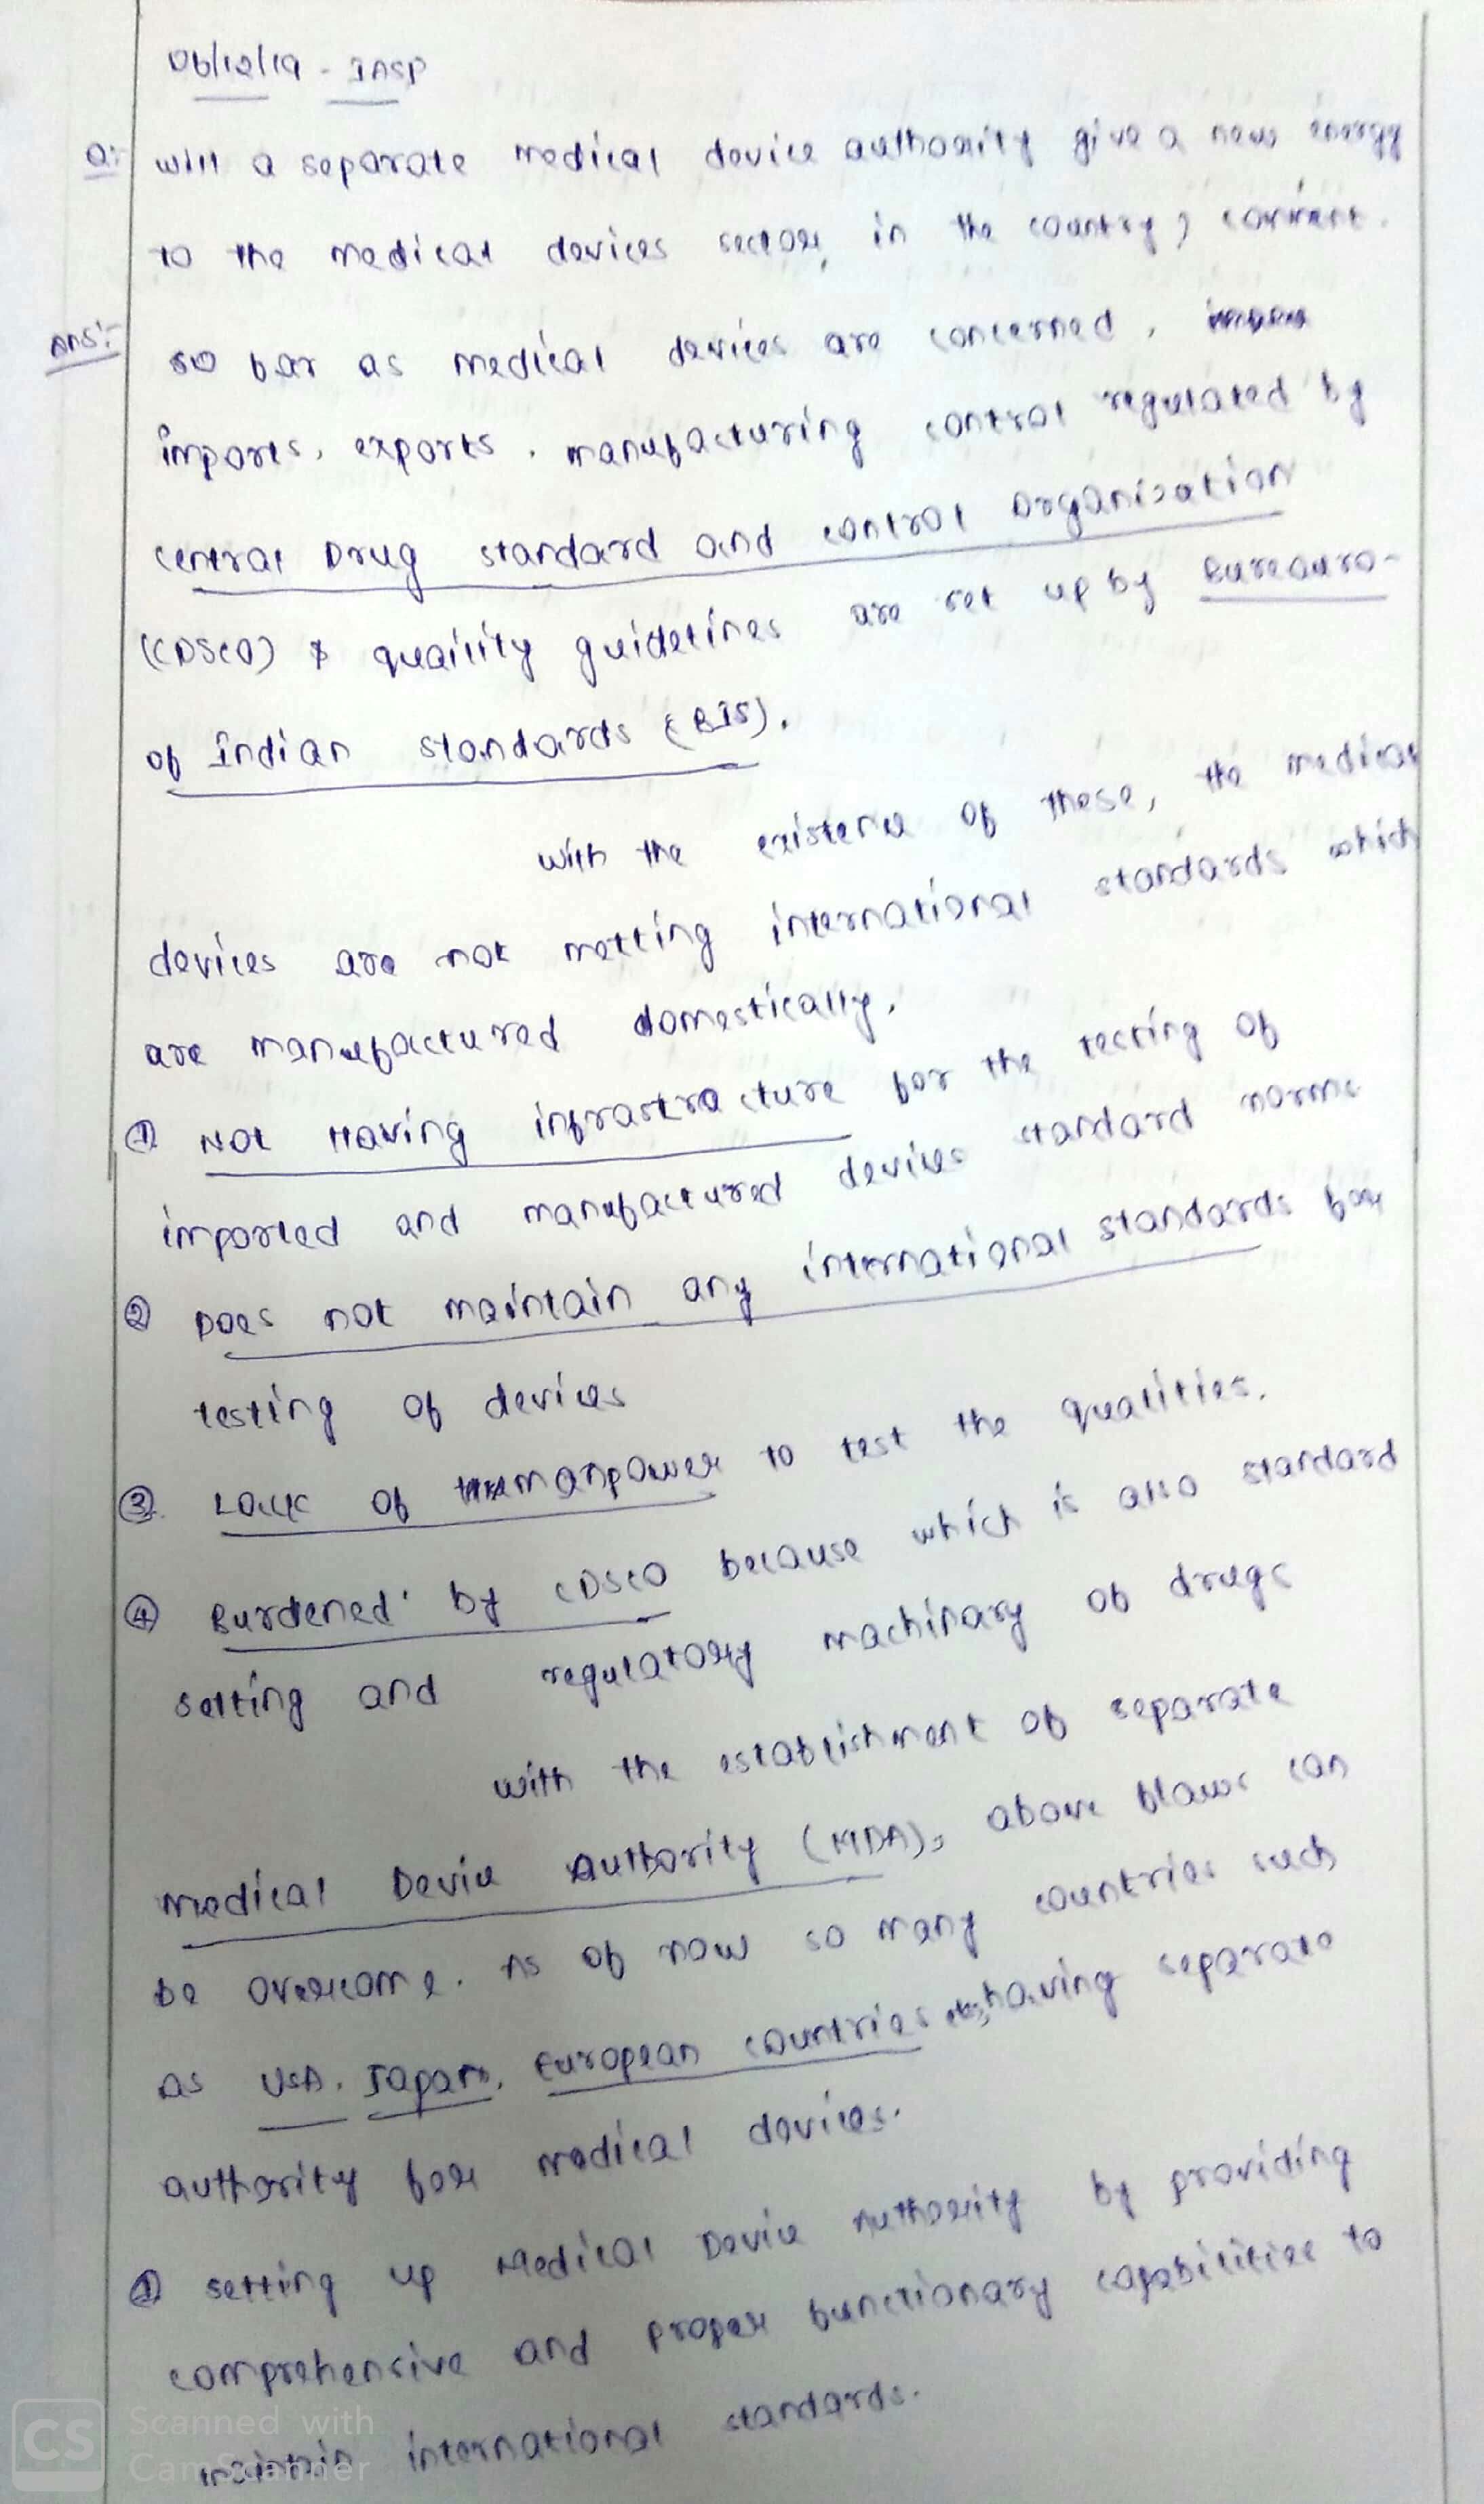 06/12/19 - INSP
Q:- will a separate medical device authority give a new energy
to the medical devices sector, in the country? comment.
Ans:- so far as medical devices are concerned,
imports, exports, manufacturing control regulated by
central Drug standard and control Organisation
(CDSCO) & quaility guidelines are set up by Bureauro-
of Indian standards (BIS).
with the existence of these, the medical
devices are not metting international standards which
are manufactured domestically.
① Not Having infrastracture for the testing of
imported and manufactured devices standard norms
② Does not maintain any international standards for
testing of devices
③. Lack of manpower to test the qualities.
④ Burdened by CDSCO because which is also standard
setting and regulatory machinary of drugs
with the establishment of separate
medical Device Authority (MDA), above flaws can
be overcome. As of now so many countries such
as USA, Japan, European countries having separate
authority for medical devices.
① setting up Medical Device Authority by providing
comprehensive and proper functionary capabilities to
maintain international standards.
CS Scanned with
CamScanner